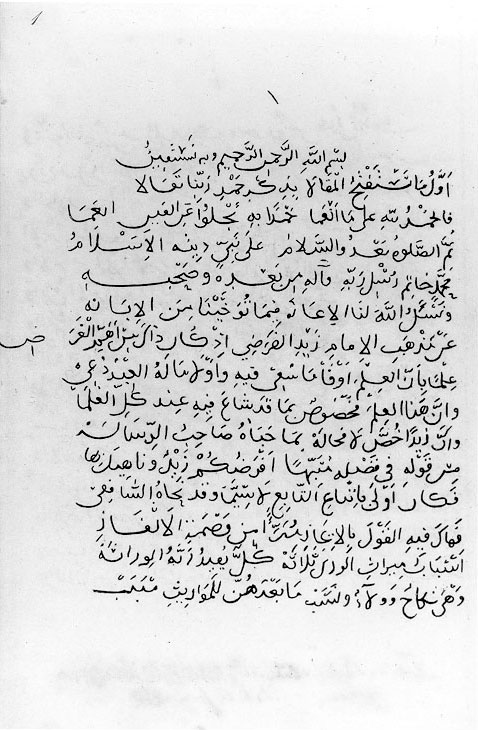 ١
١
بسم الله الرحمن الرحيم وبه نستعين
اول ما نستفتح المقالا بذكر حمد ربنا تعالا
فالحمد لله على ما انعما حمدا به نجلوا عن القلب العما
ثم الصلوة بعد والسلام على نبي دينه الاسلام
محمد خاتم رسل ربه وآله من بعده وصحبه
ونسئل الله لنا الاعانه فيما توخينا من الابانه
عن مذهب الامام زيد الفرضي اذ كان ذاك من اهم الغرض
علما بان العلم اوفا ما سعي فيه واولا ما له العبد دعي
وان هذا العلم مخصوص بما قد شاع فيه عند كل العلما
وان زيدا خص لا محاله بما حباه صاحب الرساله
من قوله في فضله منبها افرضكم زيد وناهيك بها
فكان اولى باتباع التابع لا سيما وقد نحاه الشافعي
فهاك فيه القول بالايجاز مبرءا من وصمة الالغاز
اسباب ميراث الورى ثلاثه كل يفيد ربه الوراثه
وهي نكاح وولاء ونسب ما بعدهن للمواريث سبب